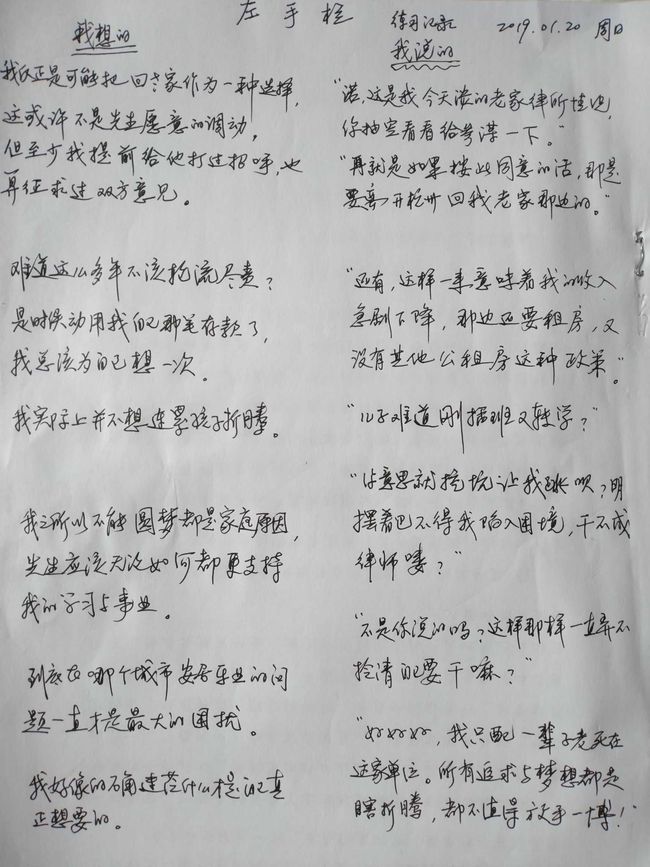 左手栏
练习记录
2019.01.20 周日
我想的
我反正是可能把回老家作为一种选择,
这或许不是先生愿意的调动,
但至少我提前给他打过招呼,也
算征求过双方意见。
难道这么多年不该抢流尽责?
是时候动用我自己那笔存款了,
我总该为自己想一次。
我实际上并不想连累孩子折腾。
我之所以不能圆梦都是家庭原因,
先生应该无论如何都更支持
我的学习与事业。
到底在哪个城市安居乐业的问
题一直才是最大的困扰。
我好像的确连范什么是自己真
正想要的。
我说的
“诺,这是我今天谈的老家律所情况,
你抽空看看给参谋一下。”
“再就是如果彼此同意的话,那是
要离开杭州回我老家那边的。”
“还有,这样一来意味着我的收入
急剧下降,那边还要租房,又
没有其他公租房这种政策。”
“儿子难道刚插班又转学?”
“你意思就挖坑让我跳呗?明
摆着巴不得我陷入困境,干不成
律师喽?”
“不是你说的吗?这样那样一直弄不
拎清自己要干嘛?”
“好好好,我只配一辈子老死在
这家单位。所有追求与梦想都是
瞎折腾,都不值得放手一博!”